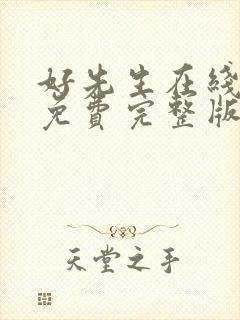 好先生在线
免費完整版
天堂之手